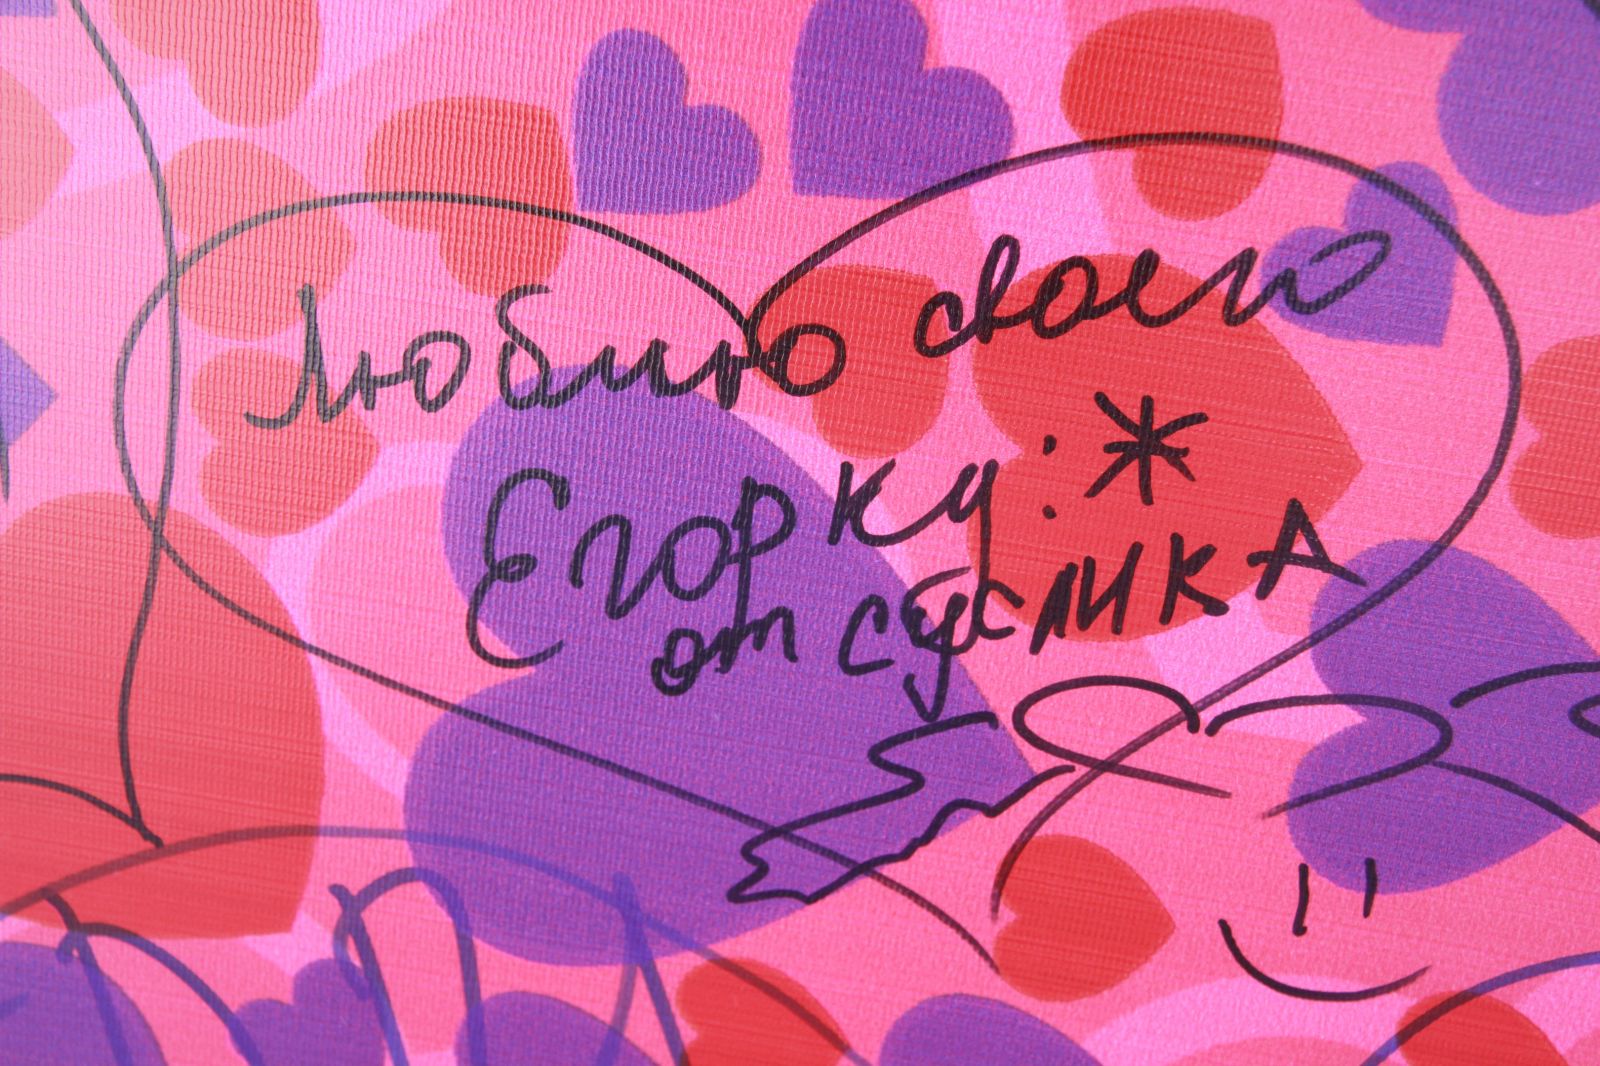 Люблю своего
Егорку :*
от суслика